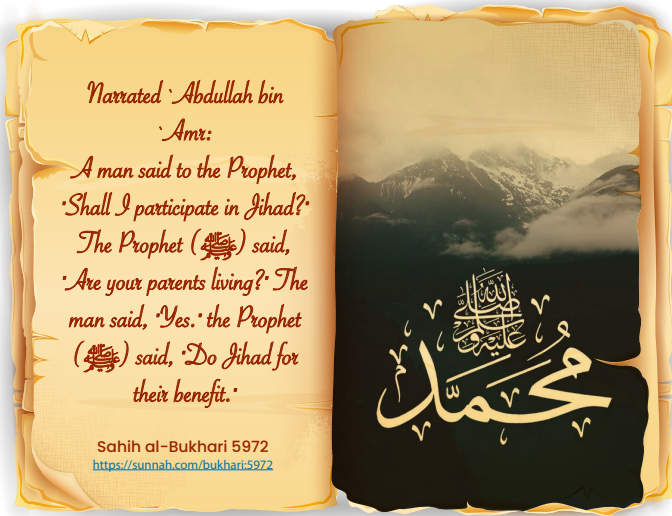 Narrated `Abdullah bin
`Amr:
A man said to the Prophet,
"Shall I participate in Jihad?"
The Prophet (ﷺ) said,
"Are your parents living?" The
man said, "Yes." the Prophet
(ﷺ) said, "Do Jihad for
their benefit."
Sahih al-Bukhari 5972
https://sunnah.com/bukhari:5972
صلى الله عليه وسلم
محمد